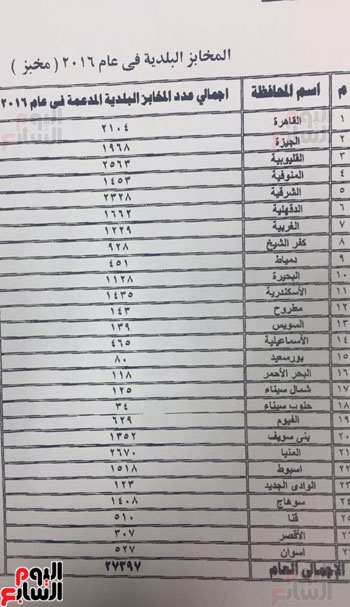 المخابز البلدية فى عام ٢٠١٦ ( مخبز )
م اسم المحافظة اجمالي عدد المخابز البلدية المدعمة فى عام ٢٠١٦
١ القاهرة ٢١٠٤
٢ الجيزة ١٩٦٨
٣ القليوبية ٢٥٦٣
٤ المنوفية ١٤٥٣
٥ الشرقية ٢٣٢٨
٦ الدقهلية ١٦٦٢
٧ الغربية ١٢٢٩
٨ كفر الشيخ ٩٢٨
٩ دمياط ٤٥١
١٠ البحيرة ١١٢٨
١١ الأسكندرية ١٤٣٥
١٢ مطروح ١٤٣
١٣ السويس ١٣٩
١٤ الأسماعيلية ٤٦٥
١٥ بورسعيد ٨٠
١٦ البحر الأحمر ١١٨
١٧ شمال سيناء ١٢٥
١٨ جنوب سيناء ٣٤
١٩ الفيوم ٦٢٩
٢٠ بنى سويف ١٣٥٢
المنيا ٢٦٧٠
اسيوط ١٥١٨
الوادى الجديد ١٢٣
سوهاج ١٤٠٨
قنا ٥١٠
الأقصر ٣٠٧
اسوان ٥٢٧
الإجمالي العام ٢٧٣٩٧
اليوم السابع